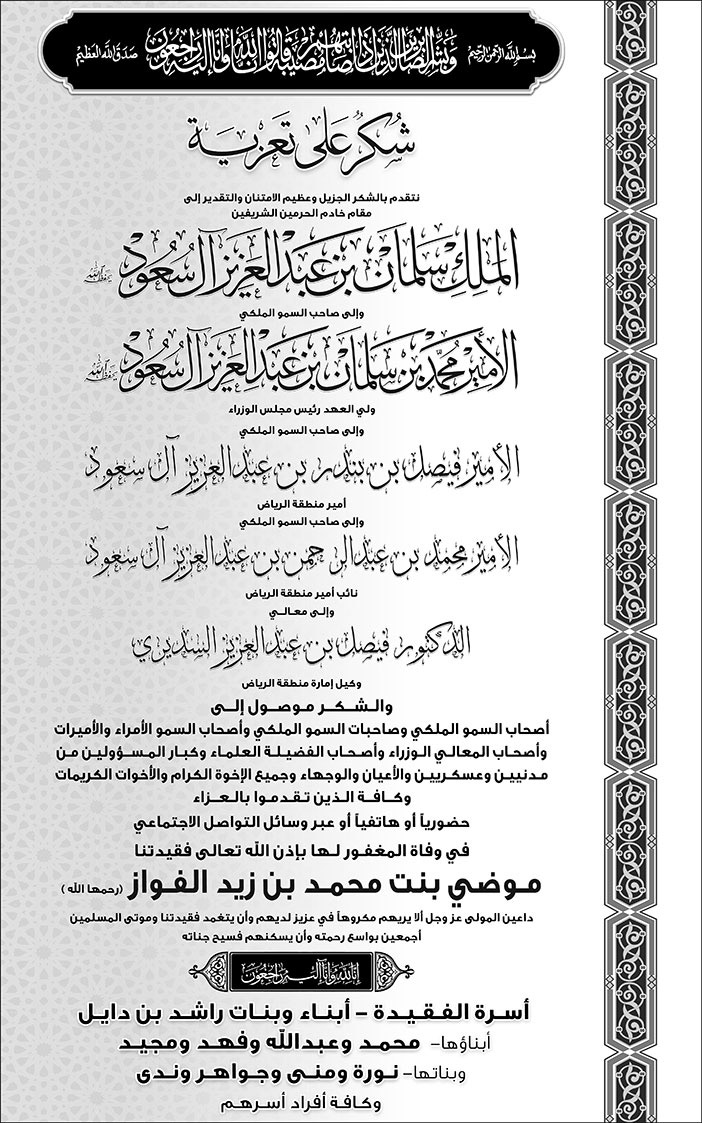 بسم الله الرحمن الرحيم
وبشر الصابرين الذين إذا أصابتهم مصيبة قالوا إنا لله وإنا إليه راجعون
صدق الله العظيم
شكر على تعزية
نتقدم بالشكر الجزيل وعظيم الامتنان والتقدير إلى
مقام خادم الحرمين الشريفين
الملك سلمان بن عبدالعزيز آل سعود حفظه الله
وإلى صاحب السمو الملكي
الأمير محمد بن سلمان بن عبدالعزيز آل سعود حفظه الله
ولي العهد رئيس مجلس الوزراء
وإلى صاحب السمو الملكي
الأمير فيصل بن بندر بن عبدالعزيز آل سعود
أمير منطقة الرياض
وإلى صاحب السمو الملكي
الأمير محمد بن عبدالرحمن بن عبدالعزيز آل سعود
نائب أمير منطقة الرياض
وإلى معالي
الدكتور فيصل بن عبدالعزيز السديري
وكيل إمارة منطقة الرياض
والشكر موصول إلى
أصحاب السمو الملكي وصاحبات السمو الملكي وأصحاب السمو الأمراء والأميرات
وأصحاب المعالي الوزراء وأصحاب الفضيلة العلماء وكبار المسؤولين من
مدنيين وعسكريين والأعيان والوجهاء وجميع الإخوة الكرام والأخوات الكريمات
وكافة الذين تقدموا بالعزاء
حضورياً أو هاتفياً أو عبر وسائل التواصل الاجتماعي
في وفاة المغفور لها بإذن الله تعالى فقيدتنا
موضي بنت محمد بن زيد الفواز (رحمها الله)
داعين المولى عز وجل ألا يريهم مكروهاً في عزيز لديهم وأن يتغمد فقيدتنا وموتى المسلمين
أجمعين بواسع رحمته وأن يسكنهم فسيح جناته
إنا لله وإنا إليه راجعون
أسرة الفقيدة – أبناء وبنات راشد بن دايل
أبناؤها- محمد وعبدالله وفهد ومجيد
وبناتها- نورة ومنى وجواهر وندى
وكافة أفراد أسرهم